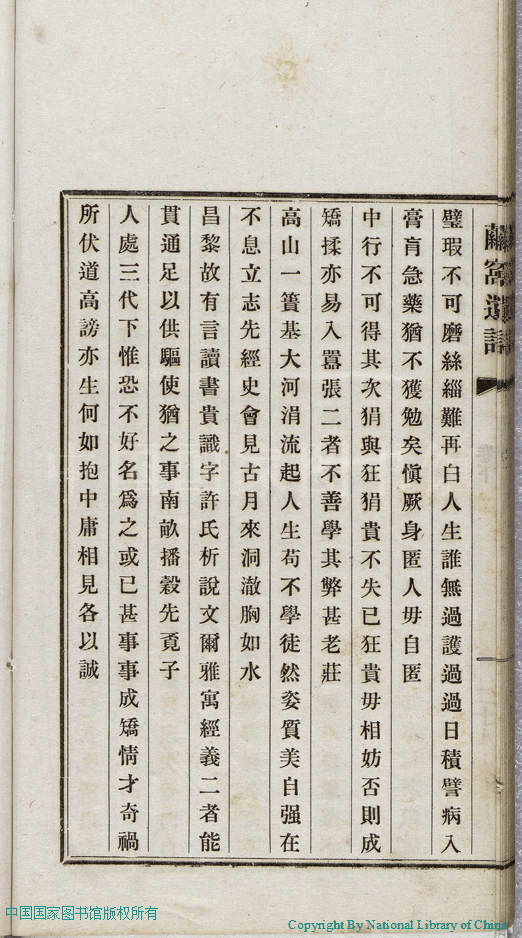 璧瑕不可磨絲緇難再白人生誰無過護過過日積譬病入
膏肓急藥猶不獲勉矣愼厥身匿人毋自匿
中行不可得其次狷與狂狷貴不失已狂貴毋相妨否則成
矯揉亦易入囂張二者不善學其弊甚老莊
高山一簣基大河涓流起人生苟不學徒然姿質美自强在
不息立志先經史會見古月來洞澈胸如水
昌黎故有言讀書貴識字許氏析說文爾雅寓經義二者能
貫通足以供驅使猶之事南畝播穀先覓子
人處三代下惟恐不好名爲之或已甚事事成矯情才奇禍
所伏道高謗亦生何如抱中庸相見各以誠
中国国家图书馆版权所有
Copyright By National Library of China